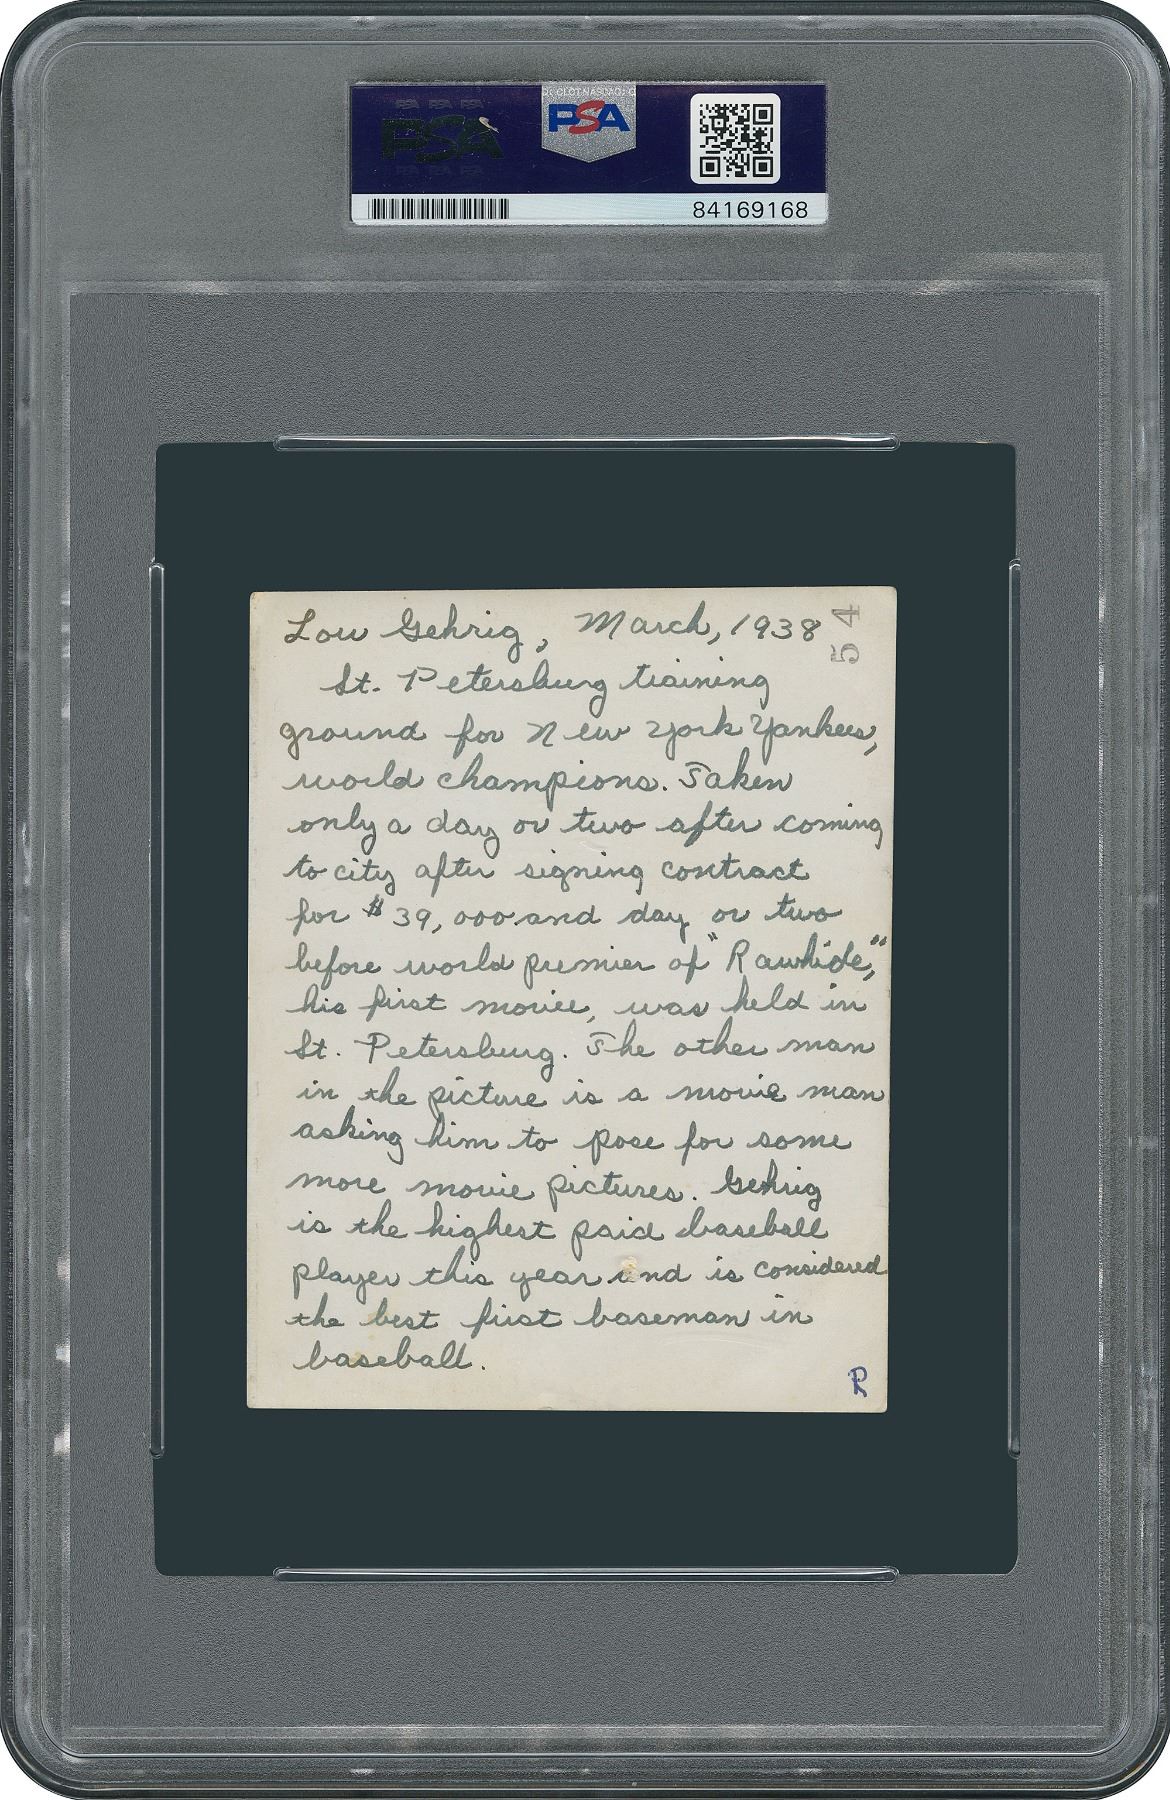 PSA PSA PSA
PSA
PSA PSA PSA
PSA
84169168
54
Lou Gehrig, March, 1938
St. Petersburg training
ground for New York Yankees,
world champions. Taken
only a day or two after coming
to city after signing contract
for $39,000 and day or two
before world premier of "Rawhide,"
his first moviee, was held in
St. Petersburg. The other man
in the picture is a movie man
asking him to pose for some
more movie pictures. Gehrig
is the highest paid baseball
player this year and is considered
the best first baseman in
baseball.
R